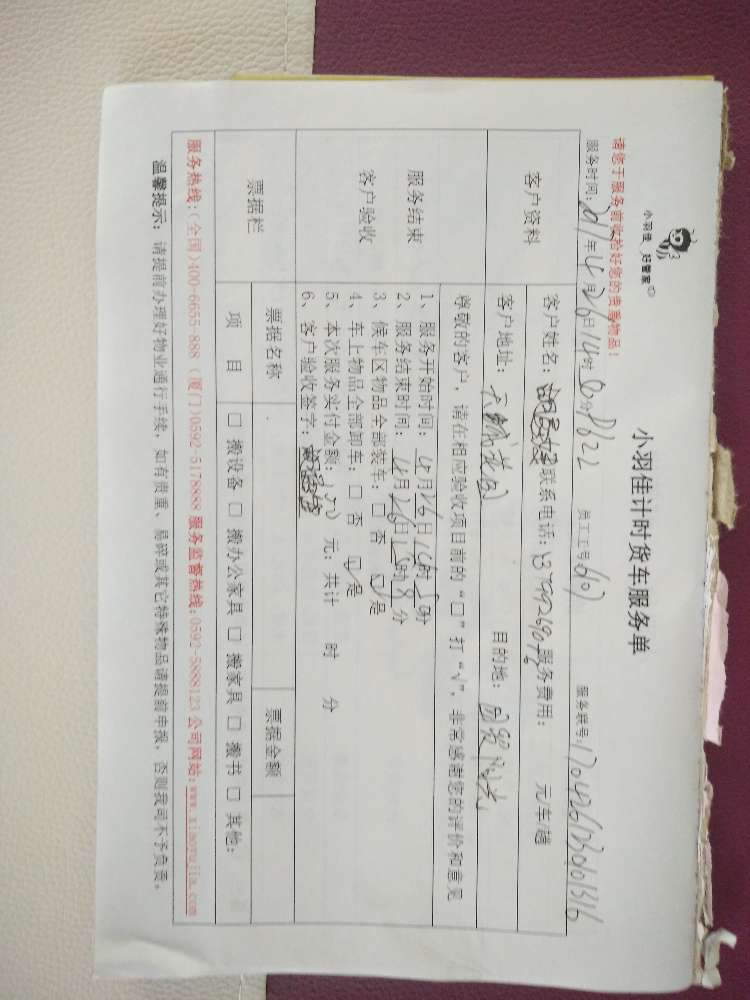 小羽佳 好管家
小羽佳计时货车服务单
请您于服务前收拾好您的贵重物品!
服务时间: 2017年4月26日14时0分 员工工号: 服务联号: 1704261230101316
客户资料
客户姓名: 联系电话: 服务费用: 元/车/趟
客户地址: 目的地:
服务结束
客户验收
尊敬的客户,请在相应验收项目前的“□”打“√”,非常感谢您的评价和意见
1、服务开始时间: 月26日 时 分
2、服务结束时间: 4月26日15时 分
3、候车区物品全部装车: □ 否 □ 是
4、车上物品全部卸车: □ 否 □ 是
5、本次服务实付金额: 150 元: 共计 时 分
6、客户验收签字:
票据栏
票据名称 票据金额
项 目 □ 搬设备 □ 搬办公家具 □ 搬家具 □ 搬书 □ 其他:
服务热线:(全国)400-6655-888 (厦门)0592-5178888 服务监督热线:0592-5888123 公司网站:www.xiaoyujia.com
温馨提示: 请提前办理好物业通行手续,如有贵重、易碎或其它特殊物品请提前申报,否则我司不予负责。